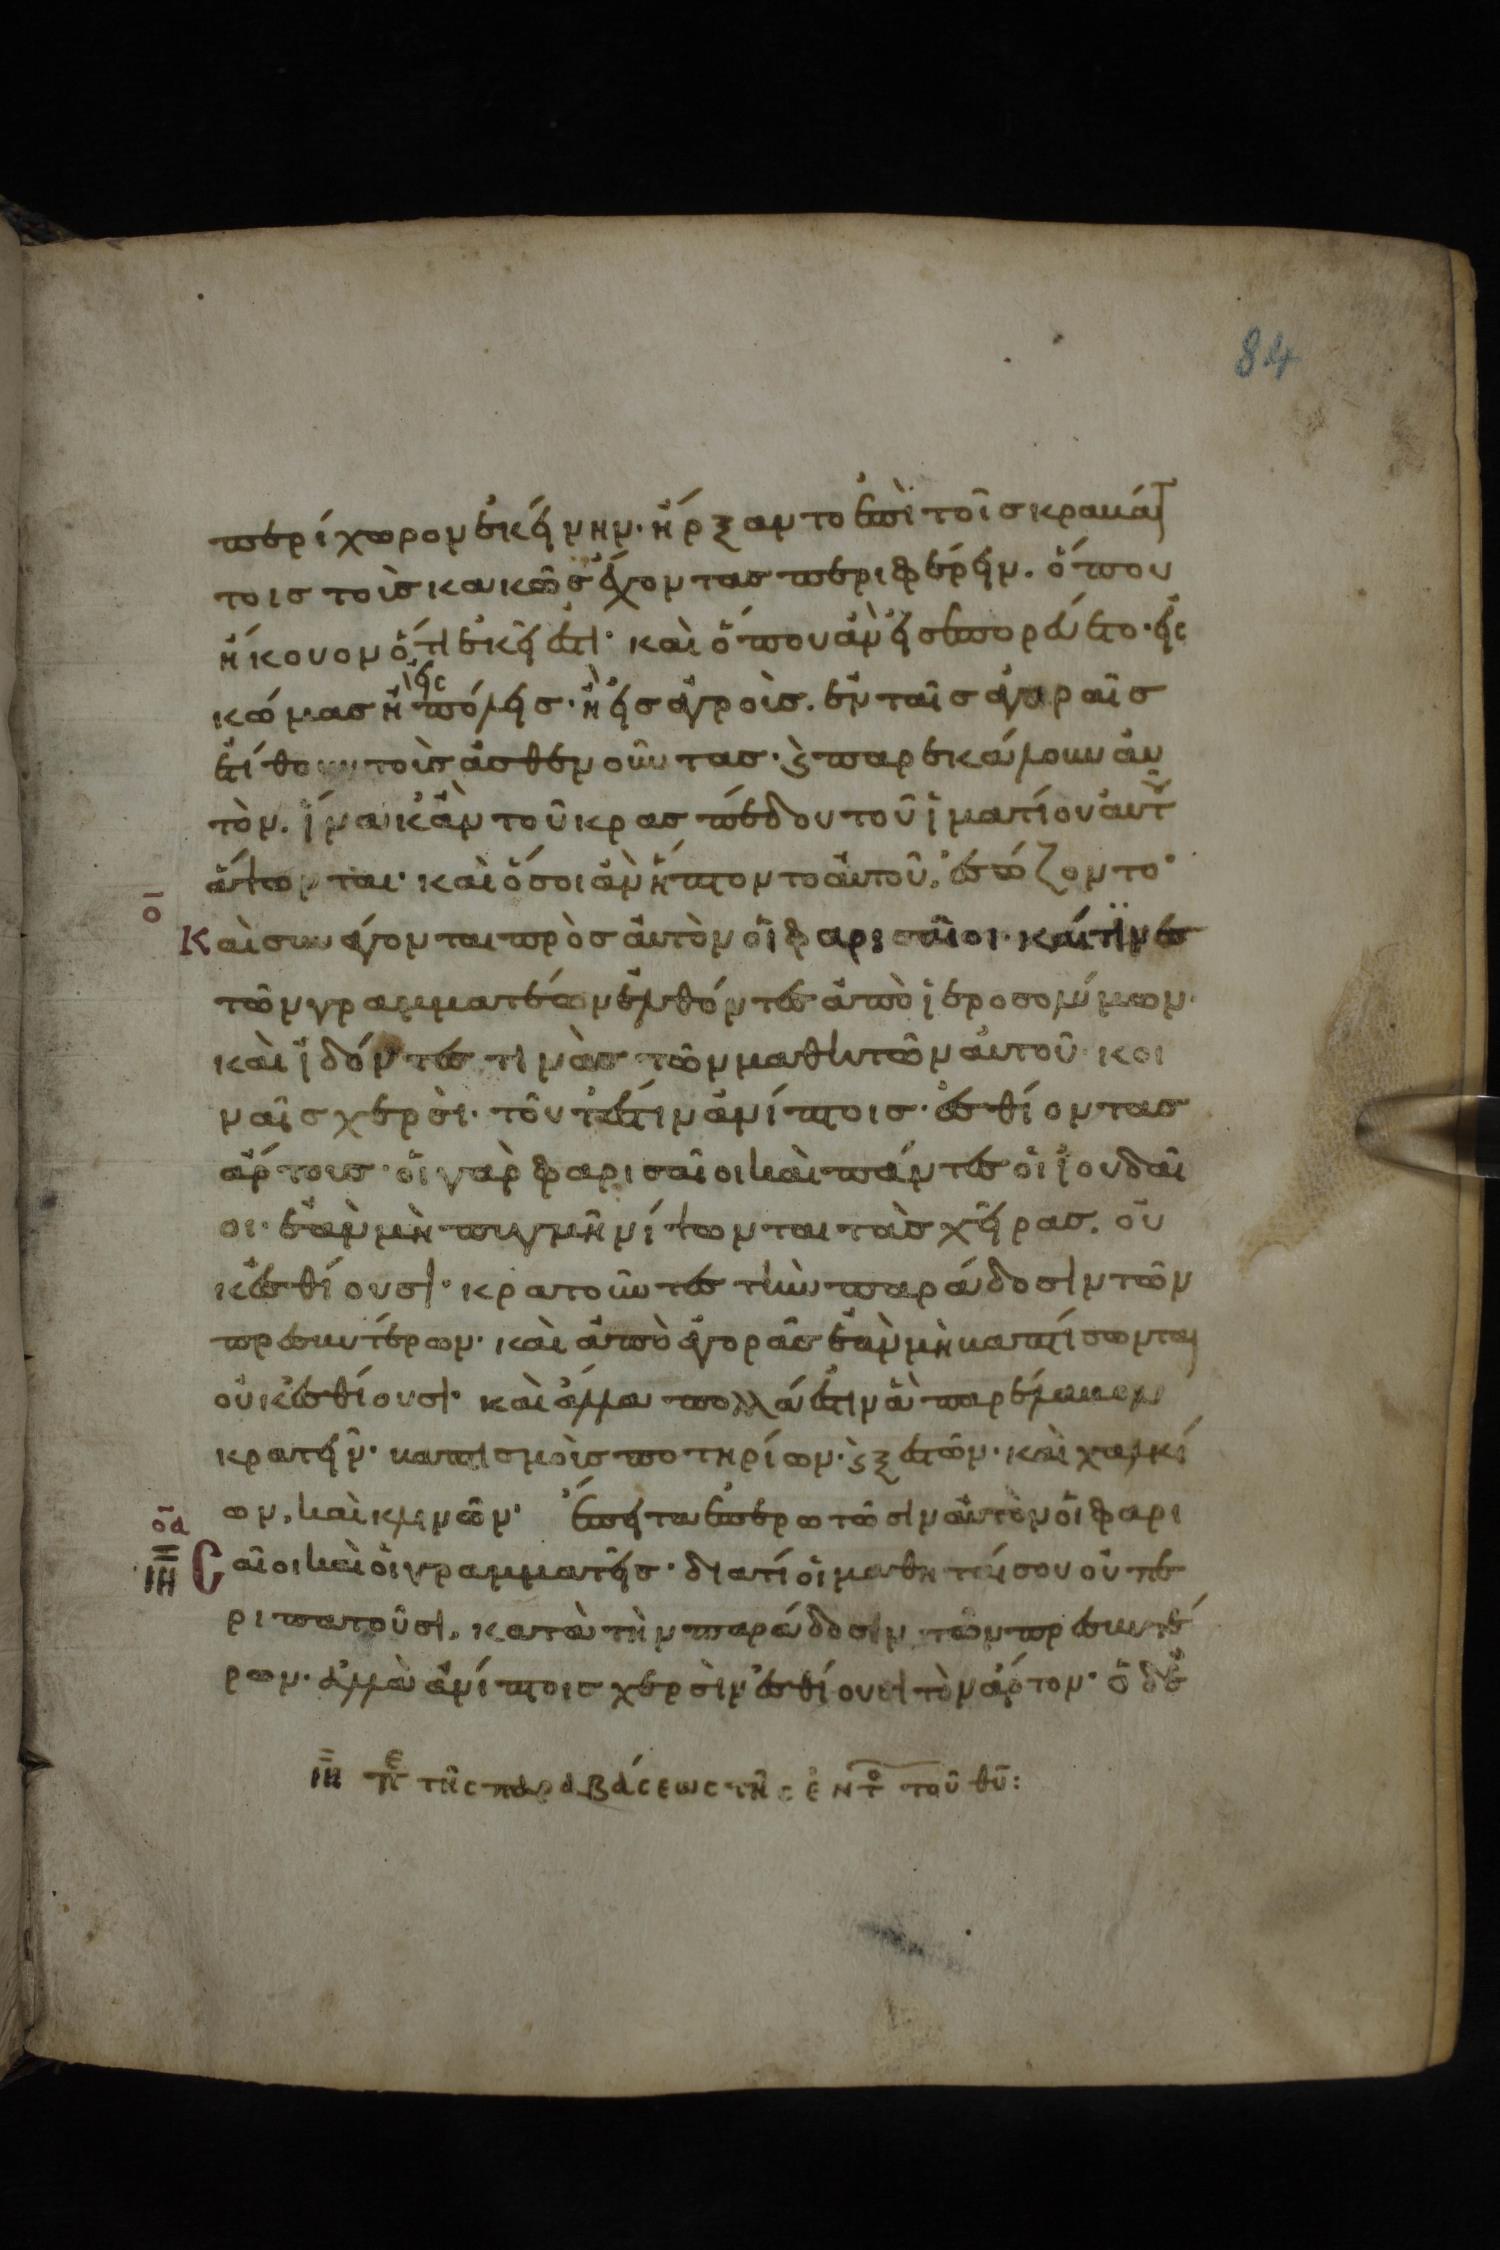 84
περίχωρον ἐκείνην· ἤρξαντο ἐπὶ τοῖς κραβάτ
τοις τοὺς κακῶς ἔχοντας περιφέρειν. ὅπου
ἤκουον ὅτι ἐκεῖ ἐστι· καὶ ὅπου ἂν εἰσεπορεύετο· εἰς
κώμας ἢ εἰς πόλεις· ἢ εἰς ἀγροὺς. ἐν ταῖς ἀγοραῖς
ἐτίθουν τοὺς ἀσθενοῦντας· ϗ παρεκάλουν αυ
τὸν. ἵνα κἂν τοῦ κρασπέδου τοῦ ἱματίου αὐτ
ἅψωνται· καὶ ὅσοι ἂν ἥπτοντο αὐτοῦ, ἐσώζοντο·
ο
Καὶ συνάγονται πρὸς αὐτὸν οἱ φαρισαῖοι· καί τινες
τῶν γραμματέων ἐλθόντες ἀπὸ ἱεροσολύμων·
καὶ ἰδόντες τινὰς τῶν μαθητῶν αὐτοῦ κοι
ναῖς χερσὶ· τοῦτέστιν ἀνίπτοις· ἐσθίοντας
ἄρτους· οἱ γὰρ φαρισαῖοι καὶ πάντες οἱ ἰουδαῖ
οι· ἐὰν μὴ πυγμῆ νίψωνται τὰς χεῖρας. οὐ
κἐσθίουσι· κρατοῦντες τὴν παράδοσιν τῶν
πρεσβυτέρων· καὶ ἀπὸ ἀγορᾶς ἐὰν μὴ βαπτίσωνται
οὐκ ἐσθίουσι· καὶ ἄλλα πολλά ἐστιν ἃ παρέλαβον
κρατεῖν· βαπτισμοὺς ποτηρίων· ϗ ξεστῶν· καὶ χαλκί
ων, καὶ κλινῶν· ἔπειτα ἐπερωτῶσιν αὐτὸν οἱ φαρι
οα
ιη
Cαῖοι καὶ οἱ γραμματεῖς· διατί οἱ μαθηταί σου οὐ πε
ριπατοῦσι, κατὰ τὴν παράδοσιν τῶν πρεσβυτέ
ρων· ἀλλὰ ἀνίπτοις χερσὶν ἐσθίουσι τὸν ἄρτον· ὁ δὲ
ιη πε τῆς παραβάσεως τῆς ἐντο τοῦ θυ: